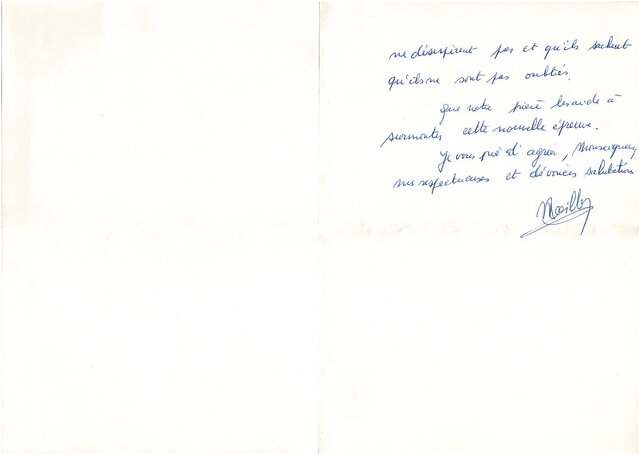 ne désespèrent pas et qu'ils sachent
qu'ils ne sont pas oubliés.
Que notre prière les aide à
surmonter cette nouvelle épreuve.
Je vous prie d'agréer, Monseigneur,
mes respectueuses et dévouées salutations